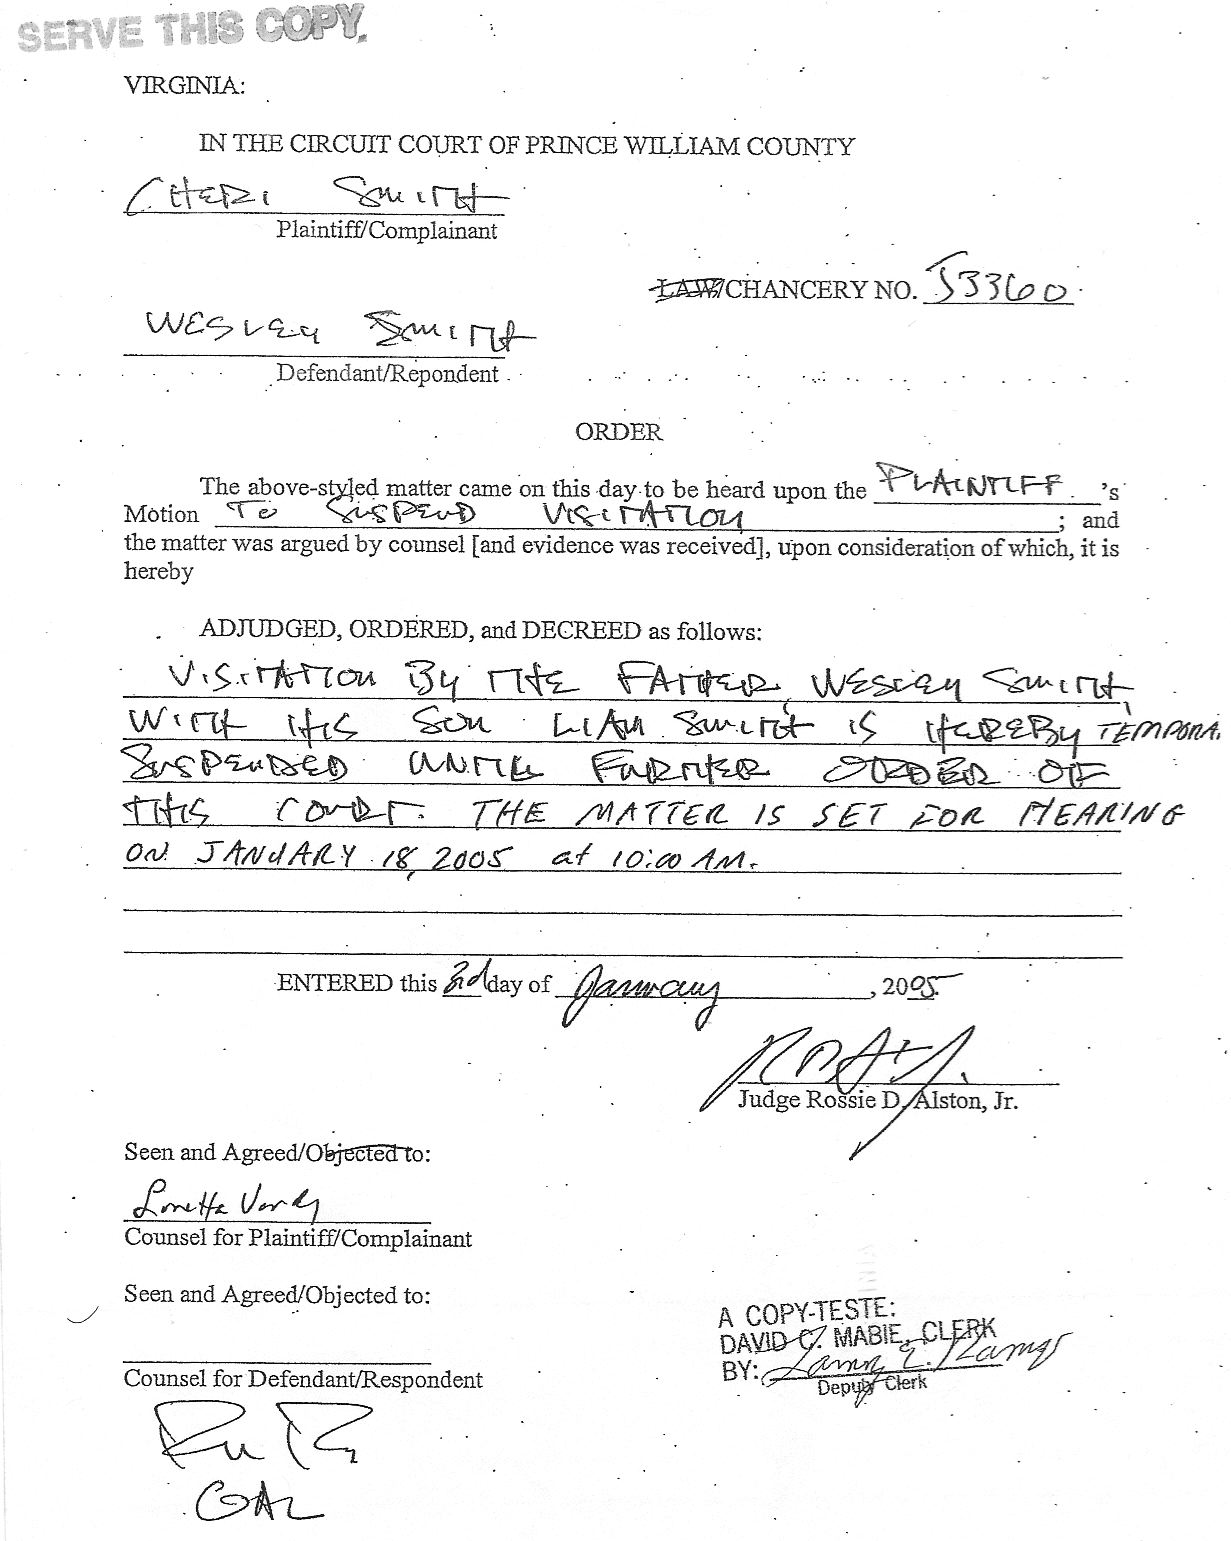 SERVE THIS COPY.
VIRGINIA:
IN THE CIRCUIT COURT OF PRINCE WILLIAM COUNTY
CHERI SMITH
Plaintiff/Complainant
LAW/CHANCERY NO. 53360
WESLEY SMITH
Defendant/Repondent
ORDER
The above-styled matter came on this day to be heard upon the PLAINTIFF 's
Motion TO SUSPEND VISITATION ; and
the matter was argued by counsel [and evidence was received], upon consideration of which, it is
hereby
ADJUDGED, ORDERED, and DECREED as follows:
VISITATION BY THE FATHER, WESLEY SMITH,
WITH HIS SON LIAM SMITH IS HEREBY TEMPORA.
SUSPENDED UNTIL FURTHER ORDER OF
THIS COURT. THE MATTER IS SET FOR HEARING
ON JANUARY 18, 2005 at 10:00 AM.
ENTERED this 3rd day of January, 2005
Judge Rossie D. Alston, Jr.
Seen and Agreed/Objected to:
Loretta Vardy
Counsel for Plaintiff/Complainant
Seen and Agreed/Objected to:
Counsel for Defendant/Respondent
GAL
A COPY-TESTE:
DAVID C. MABIE, CLERK
BY:
Deputy Clerk